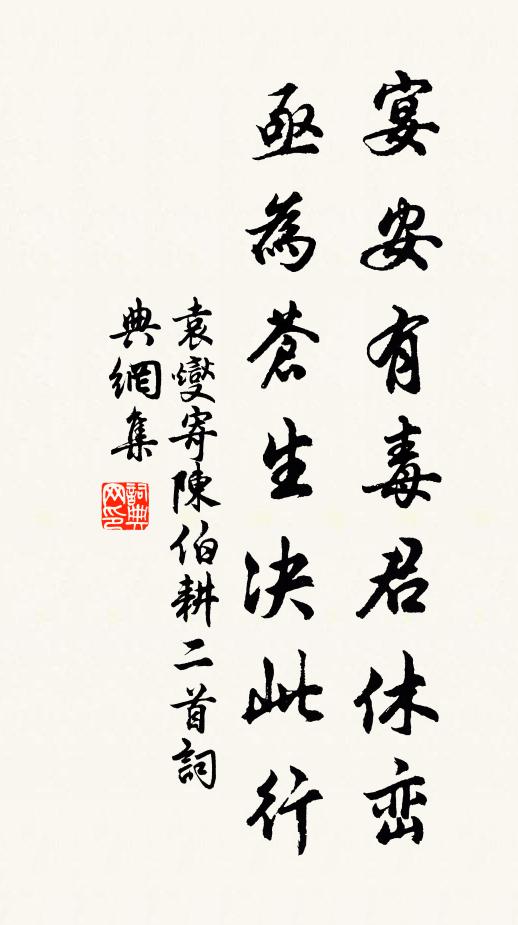 宴安有毒君休峦
亟為蒼生决此行
袁燮寄陳伯耕二首詞
典網集
詞典
网印